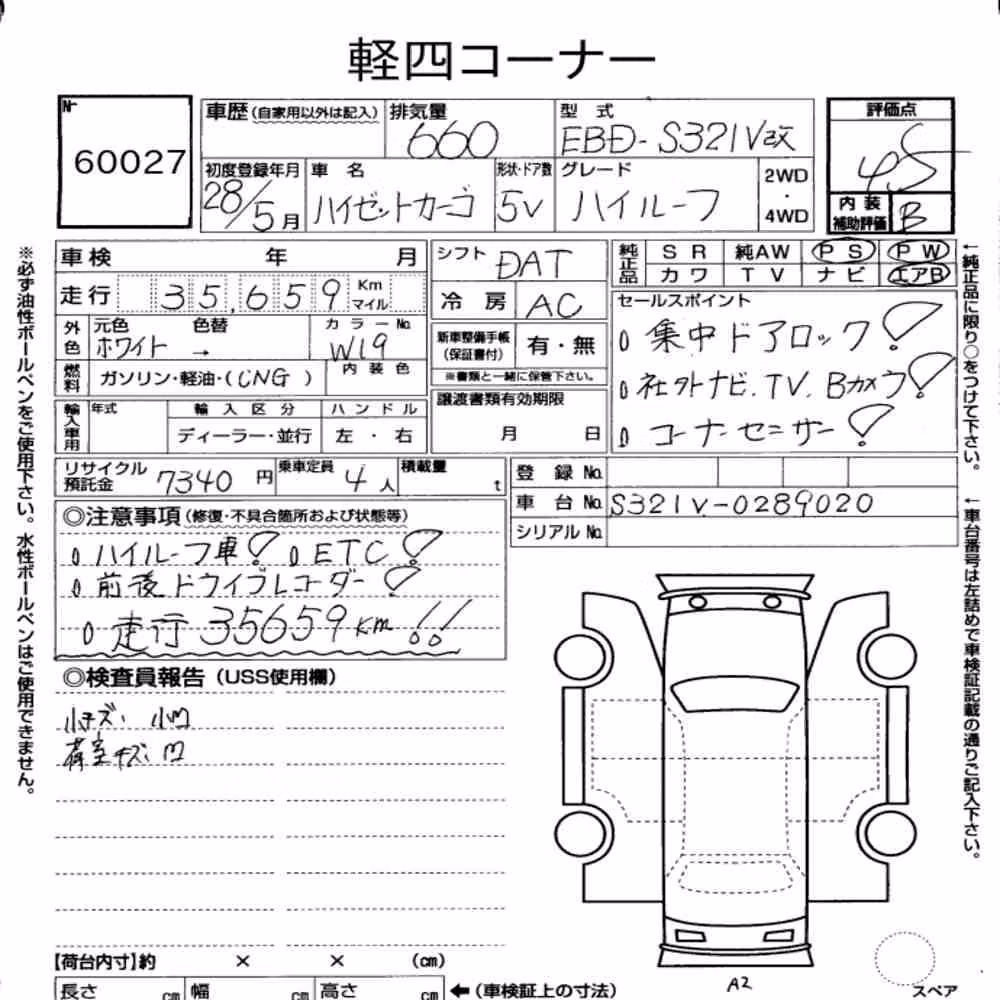 軽四コーナー
No.
60027
車歴(自家用以外は記入)
排気量
660
型 式
EBD-S321V改
評価点
4.5
初度登録年月
28/5月
車 名
ハイゼットカーゴ
形状・ドア数
5V
グレード
ハイルーフ
2WD
・
4WD
内 装
補助評価
B
車検 年 月
シフト
DAT
純正品
S R 純AW P S P W
カワ T V ナビ エアB
走行 35,659 Km
マイル
冷 房 AC
セールスポイント
集中ドアロック!
社外ナビ.TV.Bカメラ!
コーナーセンサー!
外色
元色 色替
ホワイト →
カラーNo.
W19
新車整備手帳
(保証書付)
有・無
※書類と一緒に保管下さい。
燃料
ガソリン・軽油・(CNG)
内 装 色
譲渡書類有効期限
月 日
輸入車用
年式
輸 入 区 分
ディーラー・並行
ハ ン ド ル
左 ・ 右
リサイクル
預託金
7340円
乗車定員
4人
積載量
t
登 録 No.
車 台 No. S321V-0289020
シリアル No.
◎注意事項(修復・不具合箇所および状態等)
ハイルーフ車! ETC!
前後ドライブレコーダー!
走行35659km!!
◎検査員報告(USS使用欄)
小キズ、小凹
荷室キズ、凹
【荷台内寸】約 × × (cm)
長さ cm 幅 cm 高さ cm ←(車検証上の寸法)
A2
スペア
※必ず油性ボールペンをご使用下さい。水性ボールペンはご使用できません。
←純正品に限り○をつけて下さい。
←車台番号は左詰めで車検証記載の通りご記入下さい。